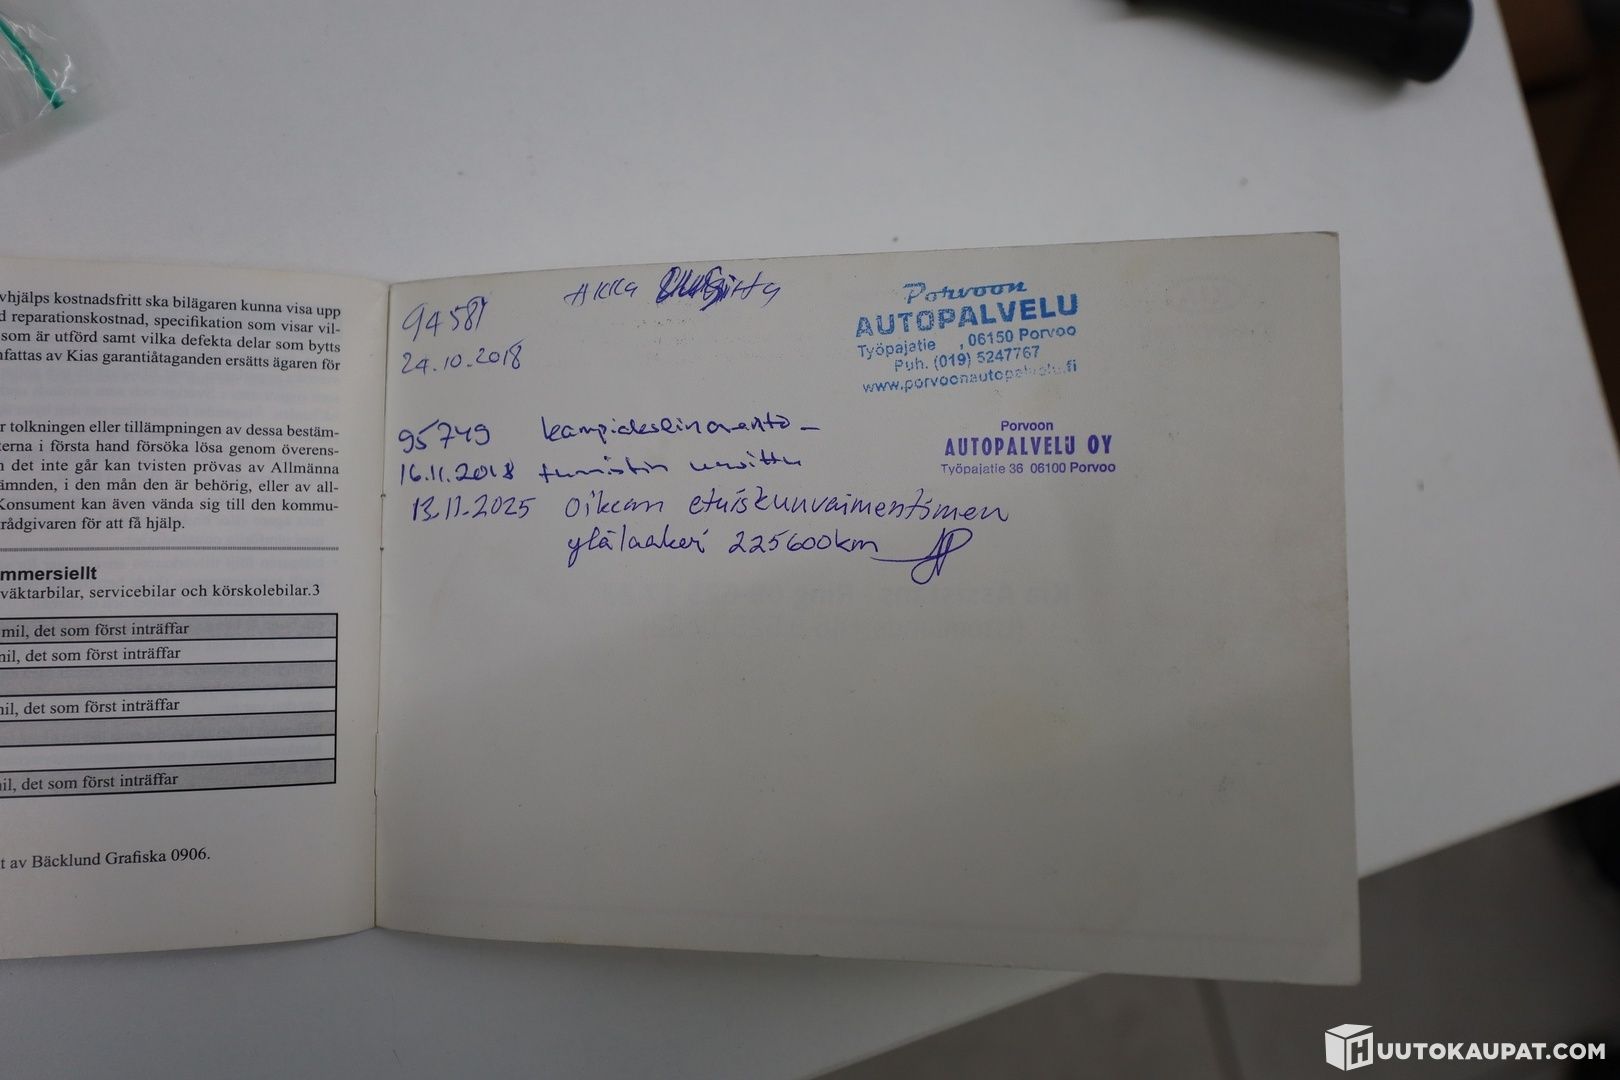 vhjälps kostnadsfritt ska bilägaren kunna visa upp
d reparationskostnad, specifikation som visar vil-
som är utförd samt vilka defekta delar som bytts
nfattas av Kias garantiåtaganden ersätts ägaren för
r tolkningen eller tillämpningen av dessa bestäm-
terna i första hand försöka lösa genom överens-
n det inte går kan tvisten prövas av Allmänna
ämnden, i den mån den är behörig, eller av all-
Konsument kan även vända sig till den kommu-
rådgivaren för att få hjälp.
mmersiellt
väktarbilar, servicebilar och körskolebilar.3
mil, det som först inträffar
nil, det som först inträffar
nil, det som först inträffar
nil, det som först inträffar
t av Bäcklund Grafiska 0906.
94587
24.10.2018
Porvoon
AUTOPALVELU
Työpajatie , 06150 Porvoo
Puh. (019) 5247767
www.porvoonautopalvelu.fi
95749 kampiakselin
16.11.2018 tunnistin
Porvoon
AUTOPALVELU OY
Työpajatie 36 06100 Porvoo
13.11.2025 Oikean etuiskunvaimentimen
ylälaakeri 225600km
HUUTOKAUPAT.COM